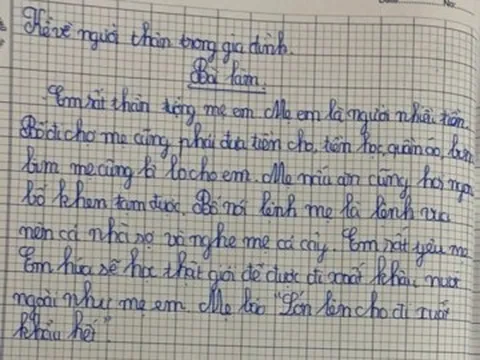 Kể về người thân trong gia đình.
Bài làm.
Em rất thần tượng mẹ em. Mẹ em là người nhiều tiền.
Bố đi chợ mẹ cũng phải đưa tiền cho, tiền học, quần áo, bỉm
bỉm mẹ cũng lo cho em. Mẹ nấu ăn cũng hơi ngon
bố khen tạm được. Bố nói lệnh mẹ là lệnh vua
nên cả nhà sợ và nghe mẹ cả cây. Em rất yêu mẹ
Em hứa sẽ học thật giỏi để được đi xuất khẩu nước
ngoài như mẹ em. Mẹ bảo "Lớn lên cho đi xuất
khẩu hết".